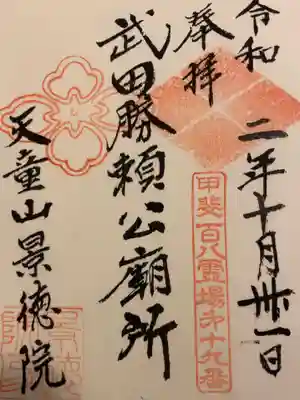 令和二年十月卅一日
奉拝
甲斐百八霊場オ十九番
武田勝頼公廟所
天童山景徳院